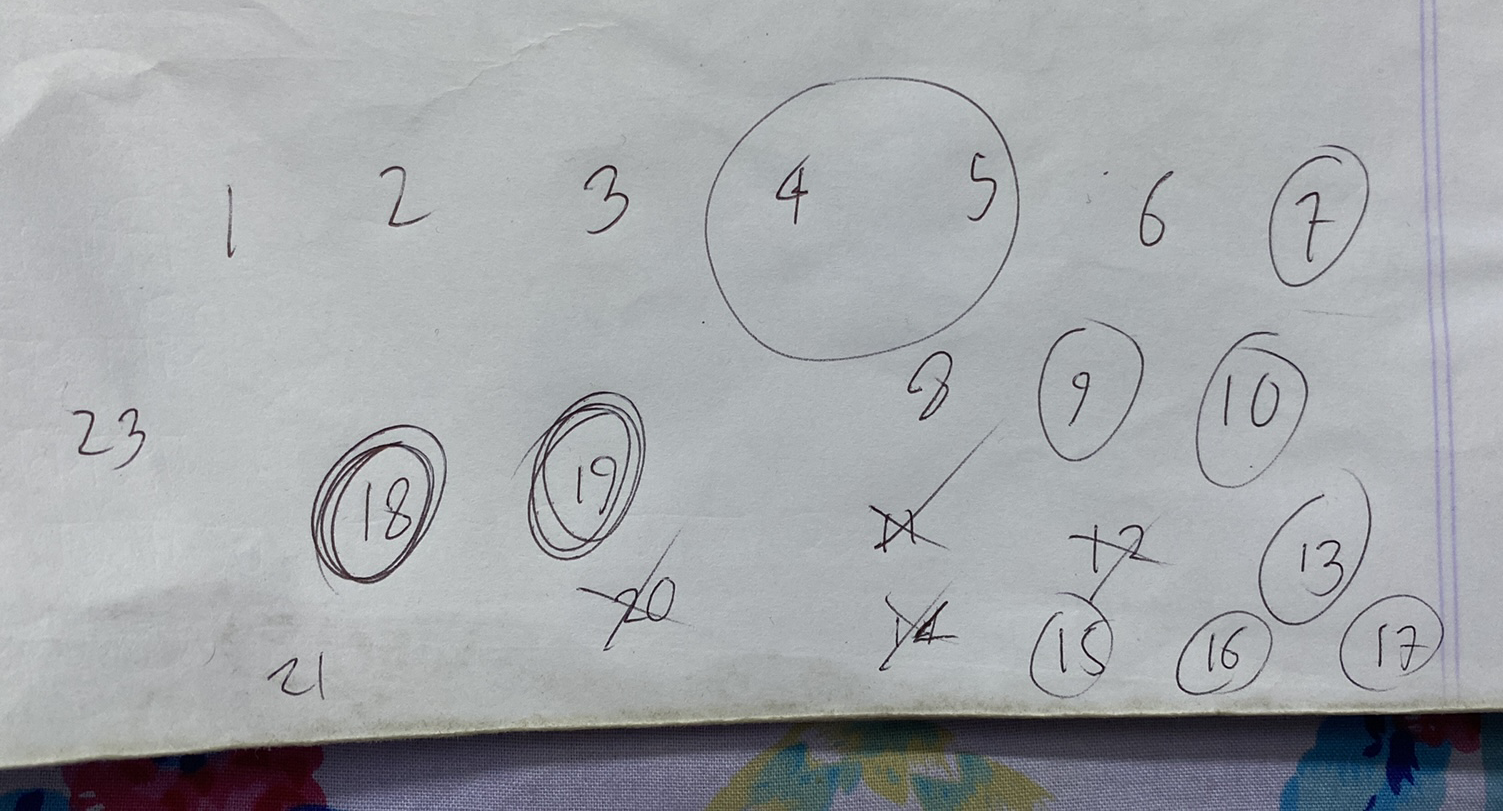 1 2 3 4 5 6 7
8 9 10
23 18 19 11 12 13
20 14 15 16 17
21